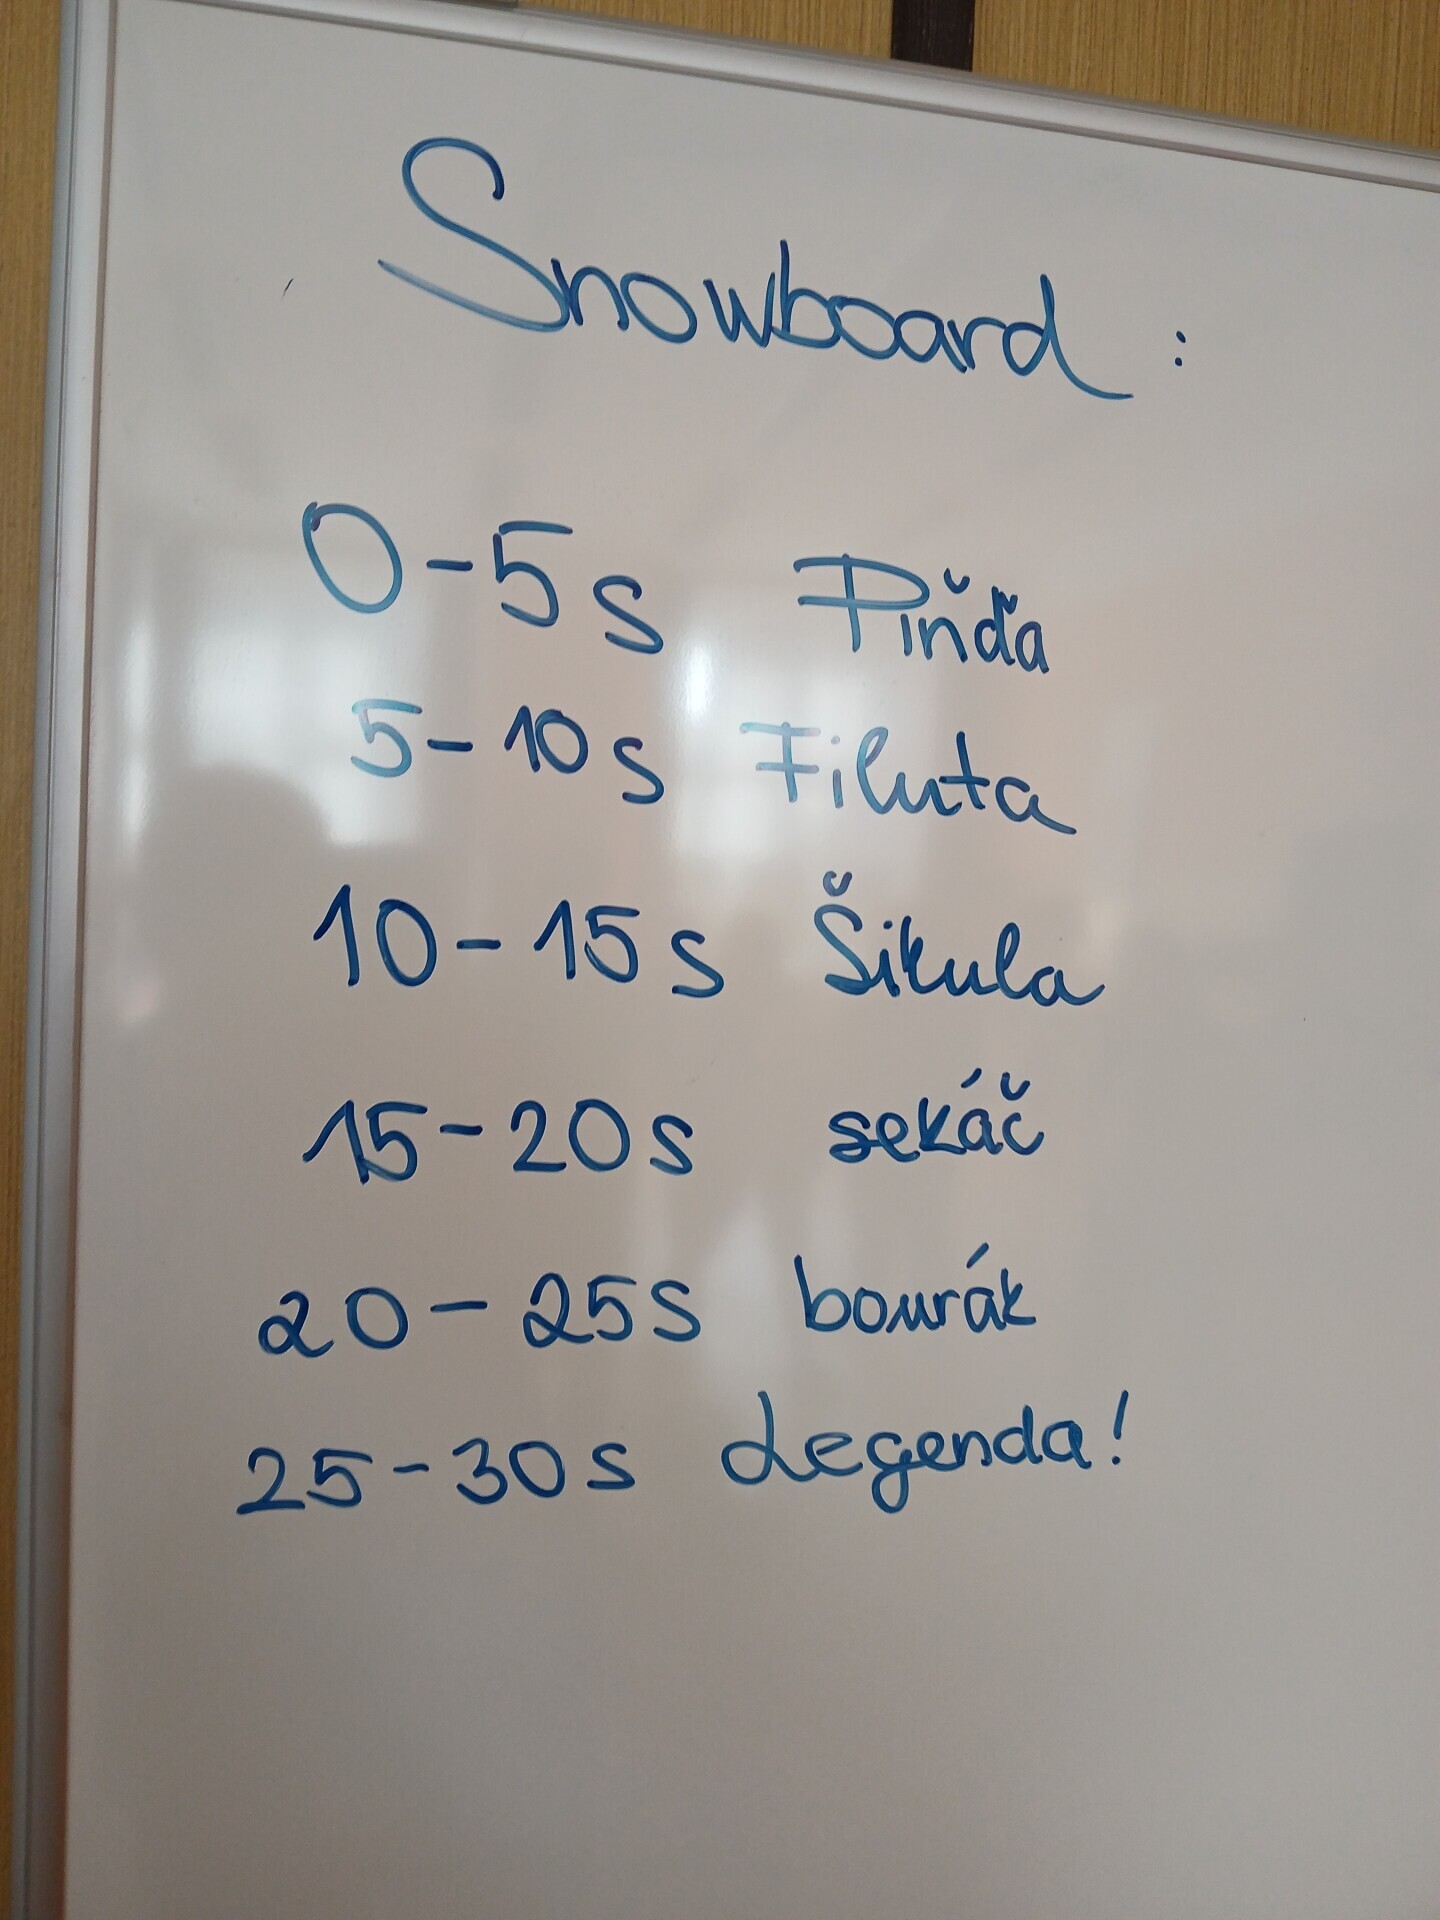 Snowboard :
0-5s Piňďa
5-10s Filuta
10-15s Šikula
15-20s sekáč
20-25s bourák
25-30s Legenda!